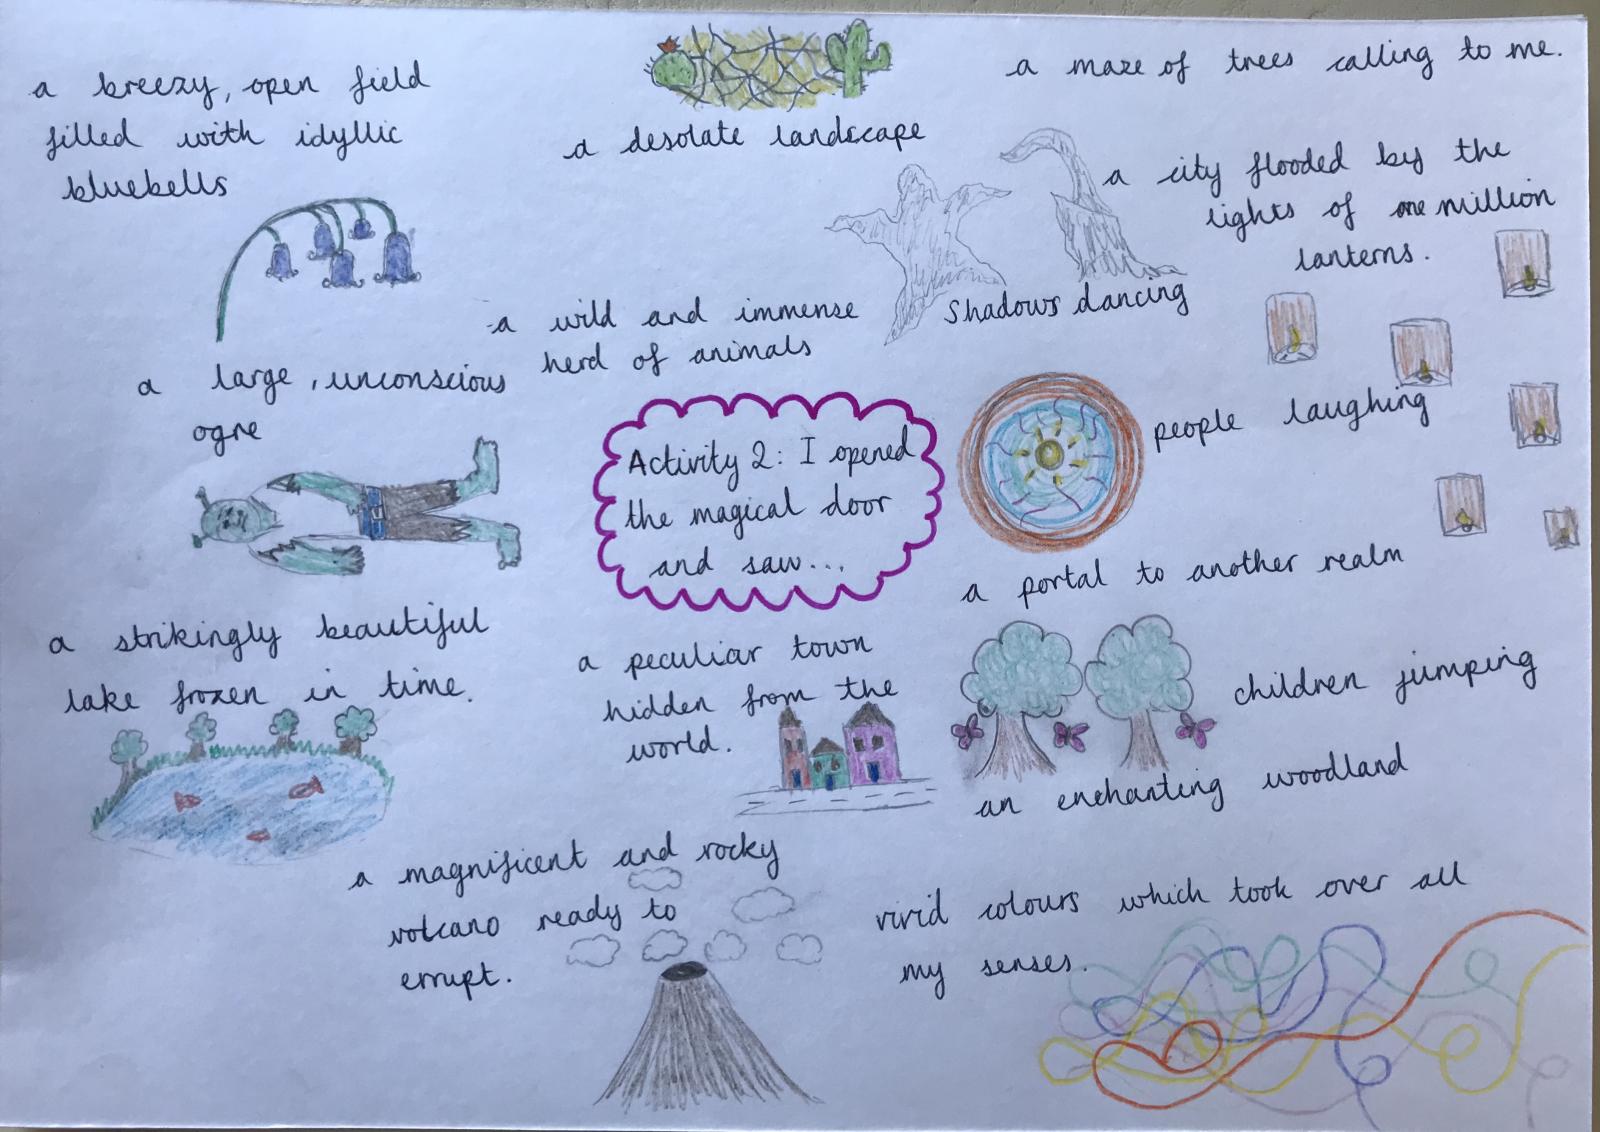 a breezy, open field
filled with idyllic
bluebells
a desolate landscape
a maze of trees calling to me.
a city flooded by the
lights of one million
lanterns.
Shadows dancing
a wild and immense
herd of animals
a large, unconscious
ogre
Activity 2: I opened
the magical door
and saw...
people laughing
a portal to another realm
a strikingly beautiful
lake frozen in time.
a peculiar town
hidden from the
world.
children jumping
an enchanting woodland
a magnificent and rocky
volcano ready to
errupt.
vivid colours which took over all
my senses.